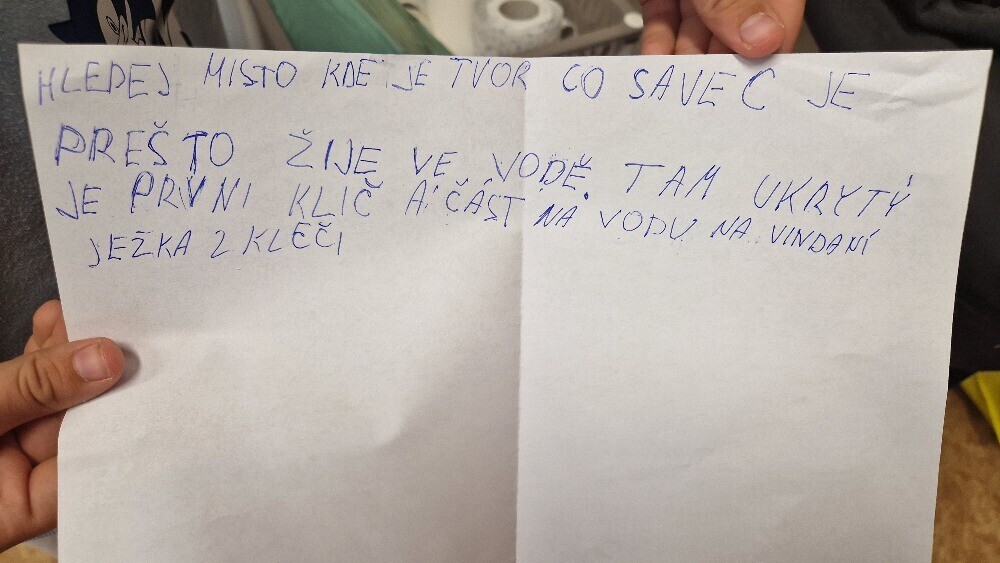 HLEDEJ MISTO KDE JE TVOR CO SAVEC JE
PREŠTO ŽIJE VE VODĚ. TAM UKRYTÝ
JE PRVNI KLIČ A ČÁST NA VODU NA VINDANÍ
JEŽKA Z KLEČI